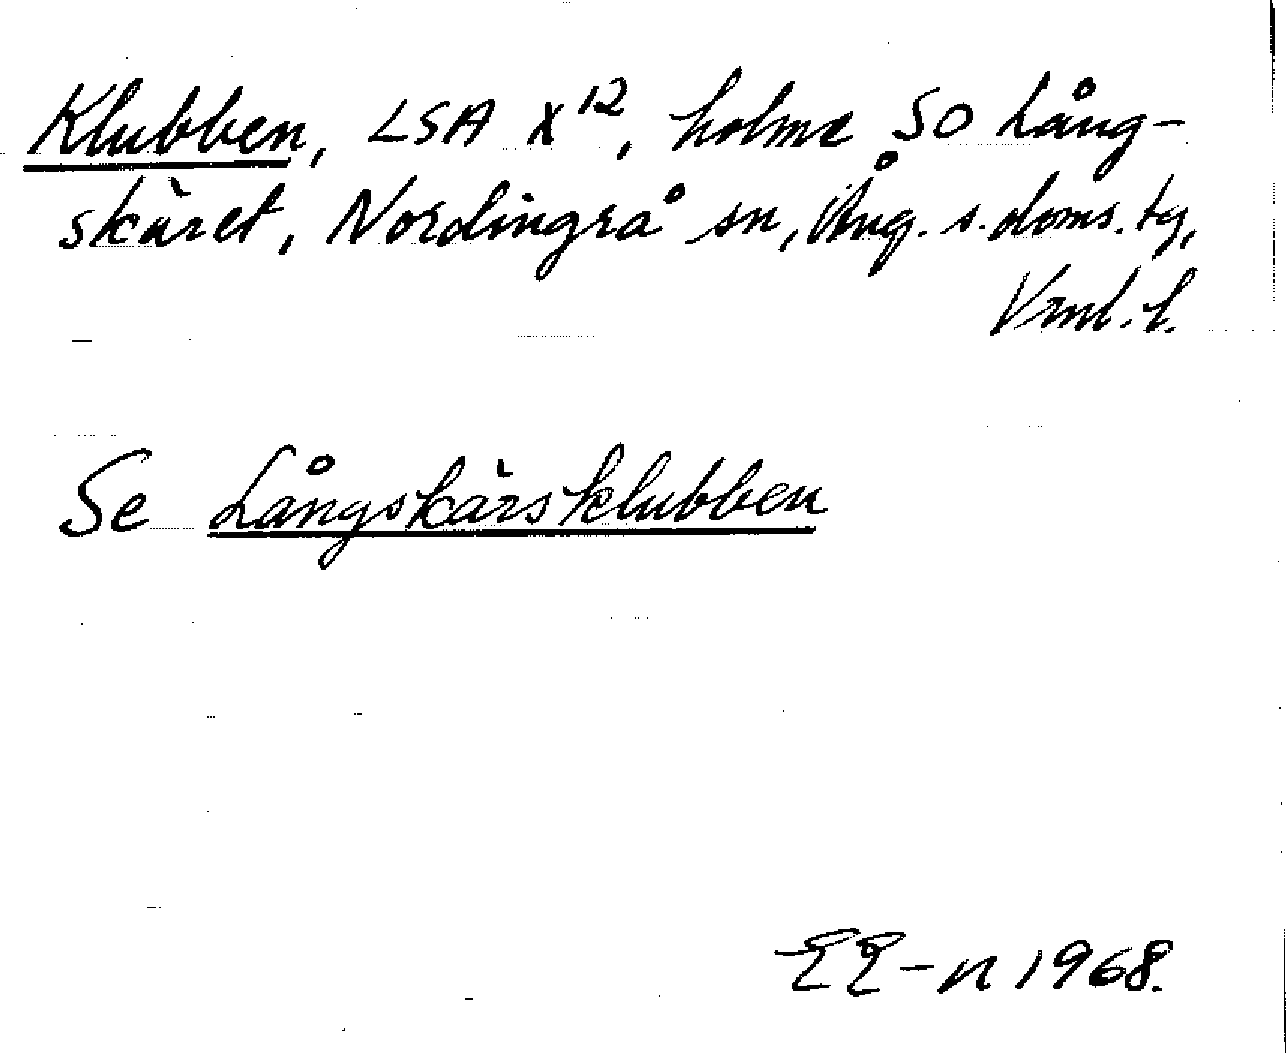 Klubben, LSA X12, holme SO Lång-
skäret, Nordingrå sn, Ång. s. doms. tg,
Vrnl. l.
Se Långskärsklubben
EE-n 1968.